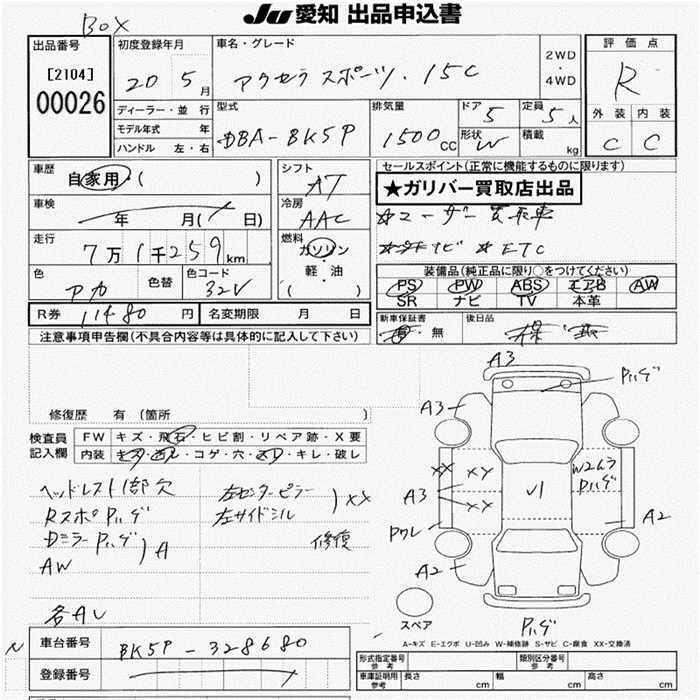 BOX
JU 愛知 出品申込書
出品番号
[2104]
00026
初度登録年月
20 5月
車名・グレード
アクセラ スポーツ・15C
2WD
・
4WD
評価点
R
外装 内装
C C
ディーラー・並行
モデル年式 年
ハンドル 左・右
型式
DBA-BK5P
排気量
1500cc
ドア
5
定員
5人
形状
W
積載
kg
車歴
自家用・( )
車検
年 月( 日)
走行
7万1千259km
色
アカ
色替
色コード
32V
シフト
AT
冷房
AAC
燃料
ガソリン
・
軽・油
( )
セールスポイント(正常に機能するものに限ります)
★ガリバー買取店出品
☆ユーザー買取車
ナビ ☆ETC
装備品(純正品に限り○をつけてください)
PS PW ABS エアB AW
SR ナビ TV 本革
R券 11480円
名変期限 月 日
新車保証書
有・無
後日品
注意事項申告欄(不具合内容等は具体的に記入して下さい)
修復歴 有(箇所 )
検査員
記入欄
FW キズ・飛石・ヒビ割・リペア跡・X要
内装 キズ・コゲ・穴・キレ・破レ
ヘッドレスト1部欠
RスポPハゲ
DミラーPハゲ
AW
A
各AU
左センターピラー
左サイドシル
XX
修復
A3
Pハゲ
A3
XX XY
XX
A3
Pワレ
A2
W2ムラ
Pハゲ
A2
スペア
Pハゲ
A-キズ E-エクボ U-凹み W-補修跡 S-サビ C-腐食 XX-交換済
車台番号
BK5P-328680
登録番号
形式指定番号
参考
類別区分番号
参考
車庫証明用
参考
長さ cm
幅 cm
高さ cm